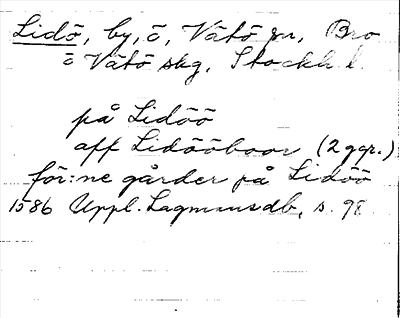 Lidö, by, ö, Vätö sn, Bro
o Vätö skg, Stockh. l.
på Lidöö
aff Lidööboor (2 ggr.)
för:ne gårder på Lidöö
1586 Uppl. Lagmansdb, s. 98